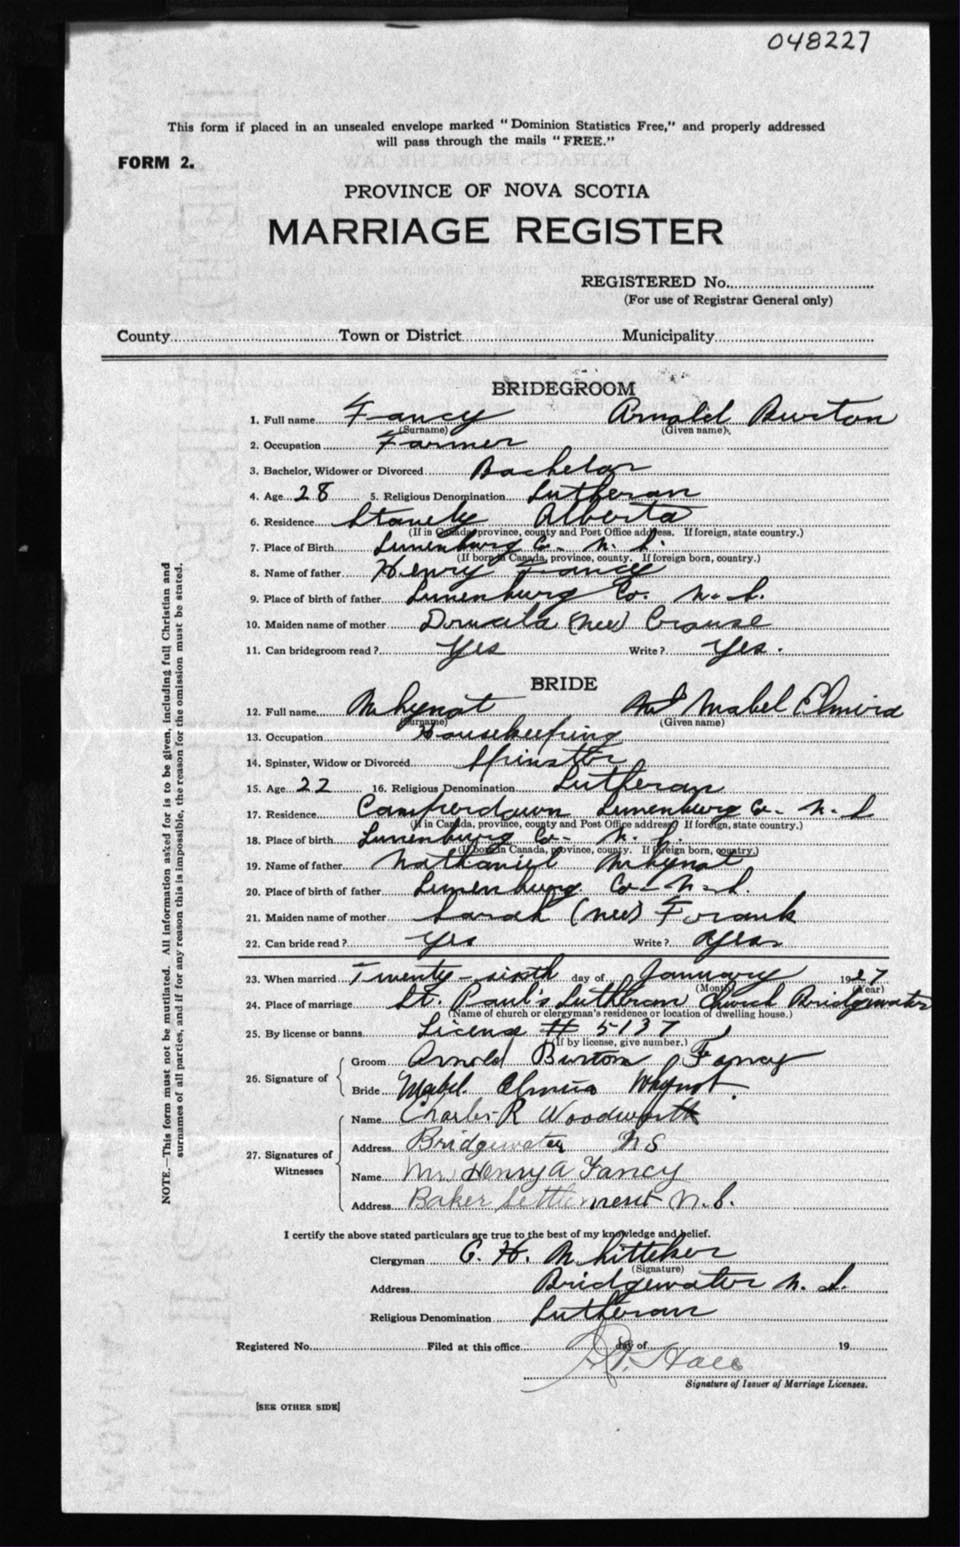 048227
This form if placed in an unsealed envelope marked "Dominion Statistics Free," and properly addressed
will pass through the mails "FREE."
FORM 2.
PROVINCE OF NOVA SCOTIA
MARRIAGE REGISTER
REGISTERED No.
(For use of Registrar General only)
County Town or District Municipality
BRIDEGROOM
1. Full name Fancy Arnold Burton
(Surname) (Given name)
2. Occupation Farmer
3. Bachelor, Widower or Divorced Bachelor
4. Age 28 5. Religious Denomination Lutheran
6. Residence Alberta
(If in Canada, province, county and Post Office address. If foreign, state country.)
7. Place of Birth Lunenburg Co. N. S.
(If born in Canada, province, county. If foreign born, country.)
8. Name of father Henry Fancy
9. Place of birth of father Lunenburg Co. N. S.
10. Maiden name of mother (nee) Crouse
11. Can bridegroom read? Yes Write? Yes.
BRIDE
12. Full name Whynot Mabel Elmira
(Surname) (Given name)
13. Occupation Housekeeping
14. Spinster, Widow or Divorced Spinster
15. Age 22 16. Religious Denomination Lutheran
17. Residence Camperdown Lunenburg Co. N. S
(If in Canada, province, county and Post Office address. If foreign, state country.)
18. Place of birth Lunenburg Co. N. S.
(If born in Canada, province, county. If foreign born, country.)
19. Name of father Nathaniel Whynot
20. Place of birth of father Lunenburg Co. N. S.
21. Maiden name of mother Sarah (nee) Frank
22. Can bride read? Yes Write? Yes
23. When married Twenty-sixth day of January 1927
(Month) (Year)
24. Place of marriage St. Paul's Lutheran Church Bridgewater
(Name of church or clergyman's residence or location of dwelling house.)
25. By license or banns License # 5137
(If by license, give number.)
26. Signature of
Groom Arnold Burton Fancy
Bride Mabel Elmira Whynot
27. Signatures of Witnesses
Name Charles R Woodworth
Address Bridgewater NS
Name Mr. Henry A Fancy
Address Baker Settlement N.S.
I certify the above stated particulars are true to the best of my knowledge and belief.
Clergyman C. H. Whitteker
(Signature)
Address Bridgewater N. S.
Religious Denomination Lutheran
Registered No. Filed at this office day of 19
Hall
Signature of Issuer of Marriage Licenses.
[SEE OTHER SIDE]
NOTE.—This form must not be mutilated. All information asked for is to be given, including full Christian and
surnames of all parties, and if for any reason this is impossible, the reason for the omission must be stated.